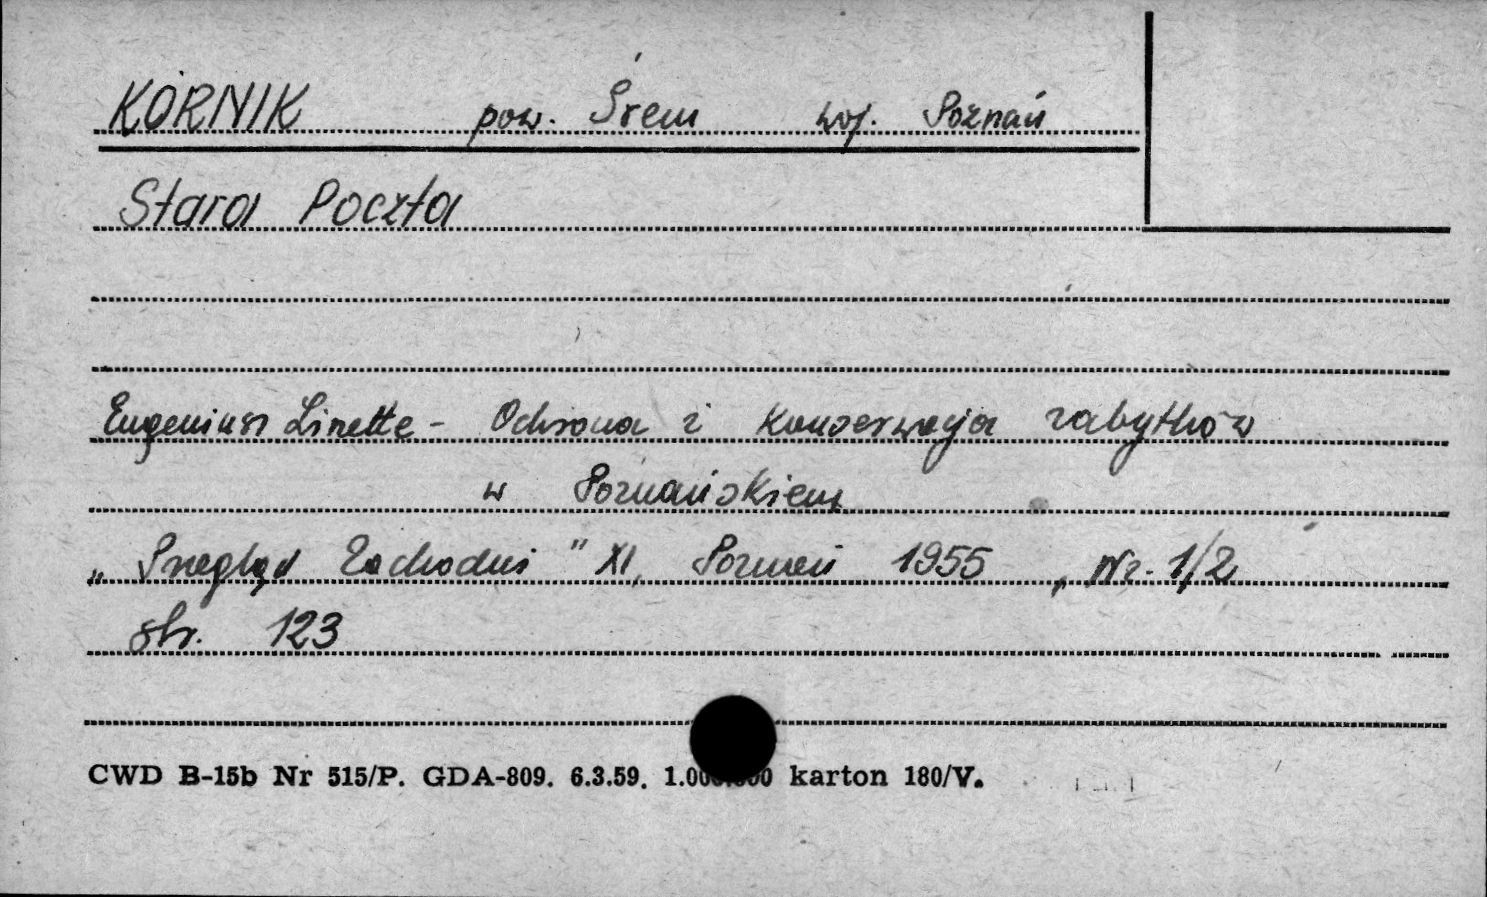 KÓRNIK pow. Śrem woj. Poznań
Stara Poczta
Eugeniusz Linette - Ochrona i konserwacja zabytków
w Poznańskiem
„Przegląd Zachodni" XI, Poznań 1955, Nr. 1/2
str. 123
CWD B-15b Nr 515/P. GDA-809. 6.3.59. karton 180/V.